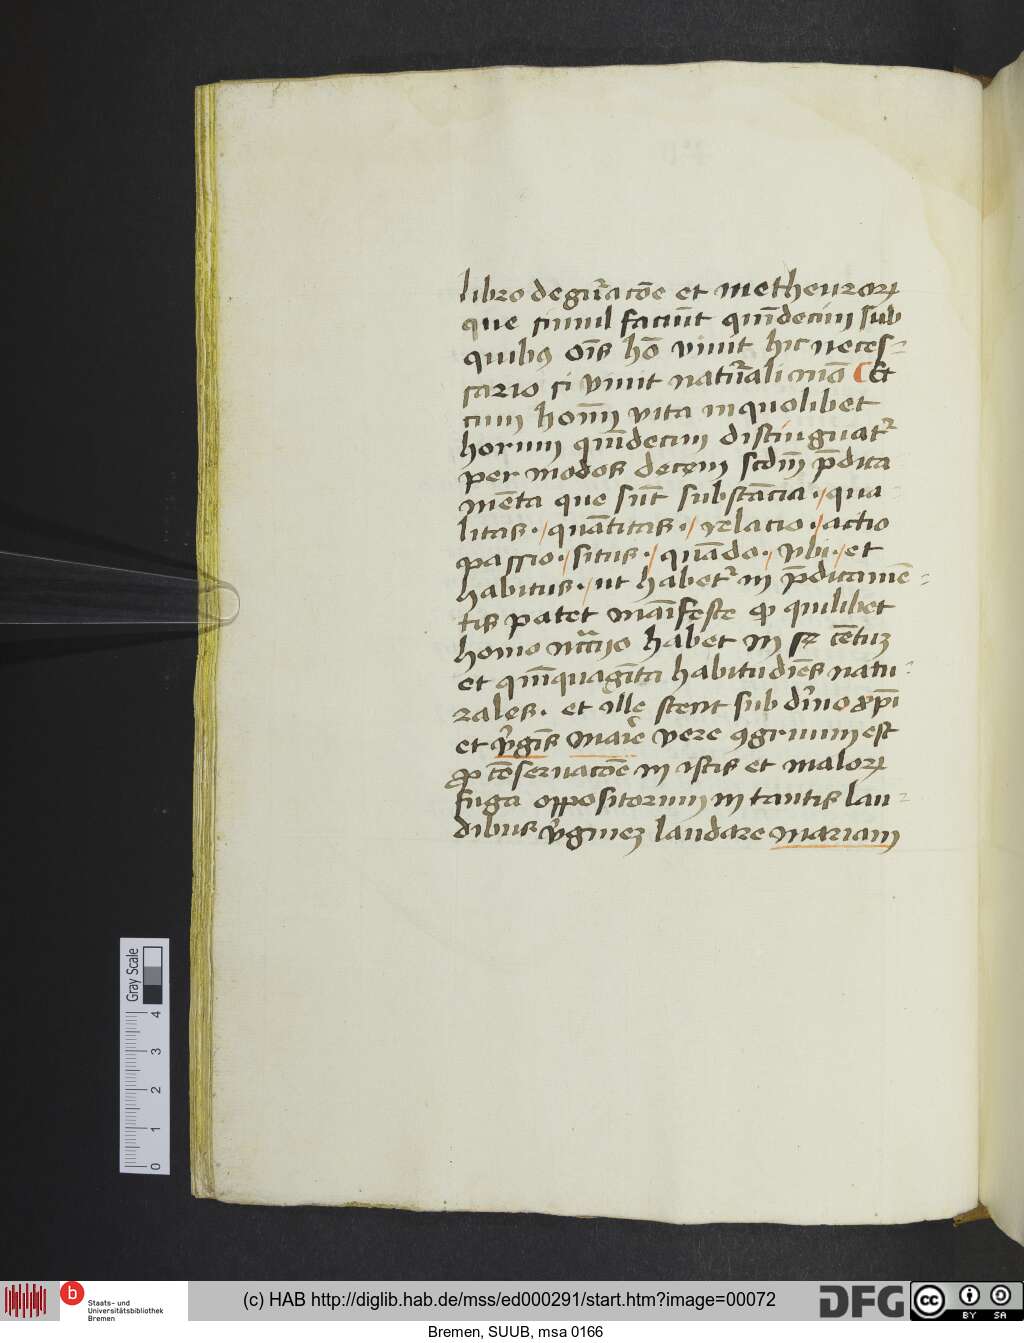 libro de gnͣacōe et metheuroꝝ
que simul faciūt quīdecim sub
quibꝰ oīs hō viuit hic neces-
sario si viuit naturali mō Et
cum homī vita in quolibet
horum quīdecim distinguatᷣ
per modos decem scdm̄ p̄dica
mēta que sūt substācia · qua
litas · quātitas · relacio · actio
passio · situs · quādo · vbi · et
habitus · ut habetᷣ in p̄dicamē-
tis patet manīfeste ꝙ quilibet
homo nccͣrio habet in se cētuꝫ
et quīquagīta habitudīes natu-
rales · et ille stent sub dīno
et v̓gīs marie vere ꝯgruum est
ꝓ cōseruacōe in istis et maloꝝ
fuga oppositorum in tantis lau-
dibus v̓gineꝫ laudare mariam
Gray Scale
0 1 2 3 4
b
Staats- und
Universitätsbibliothek
Bremen
(c) HAB http://diglib.hab.de/mss/ed000291/start.htm?image=00072
DFG
cc BY SA
Bremen, SUUB, msa 0166